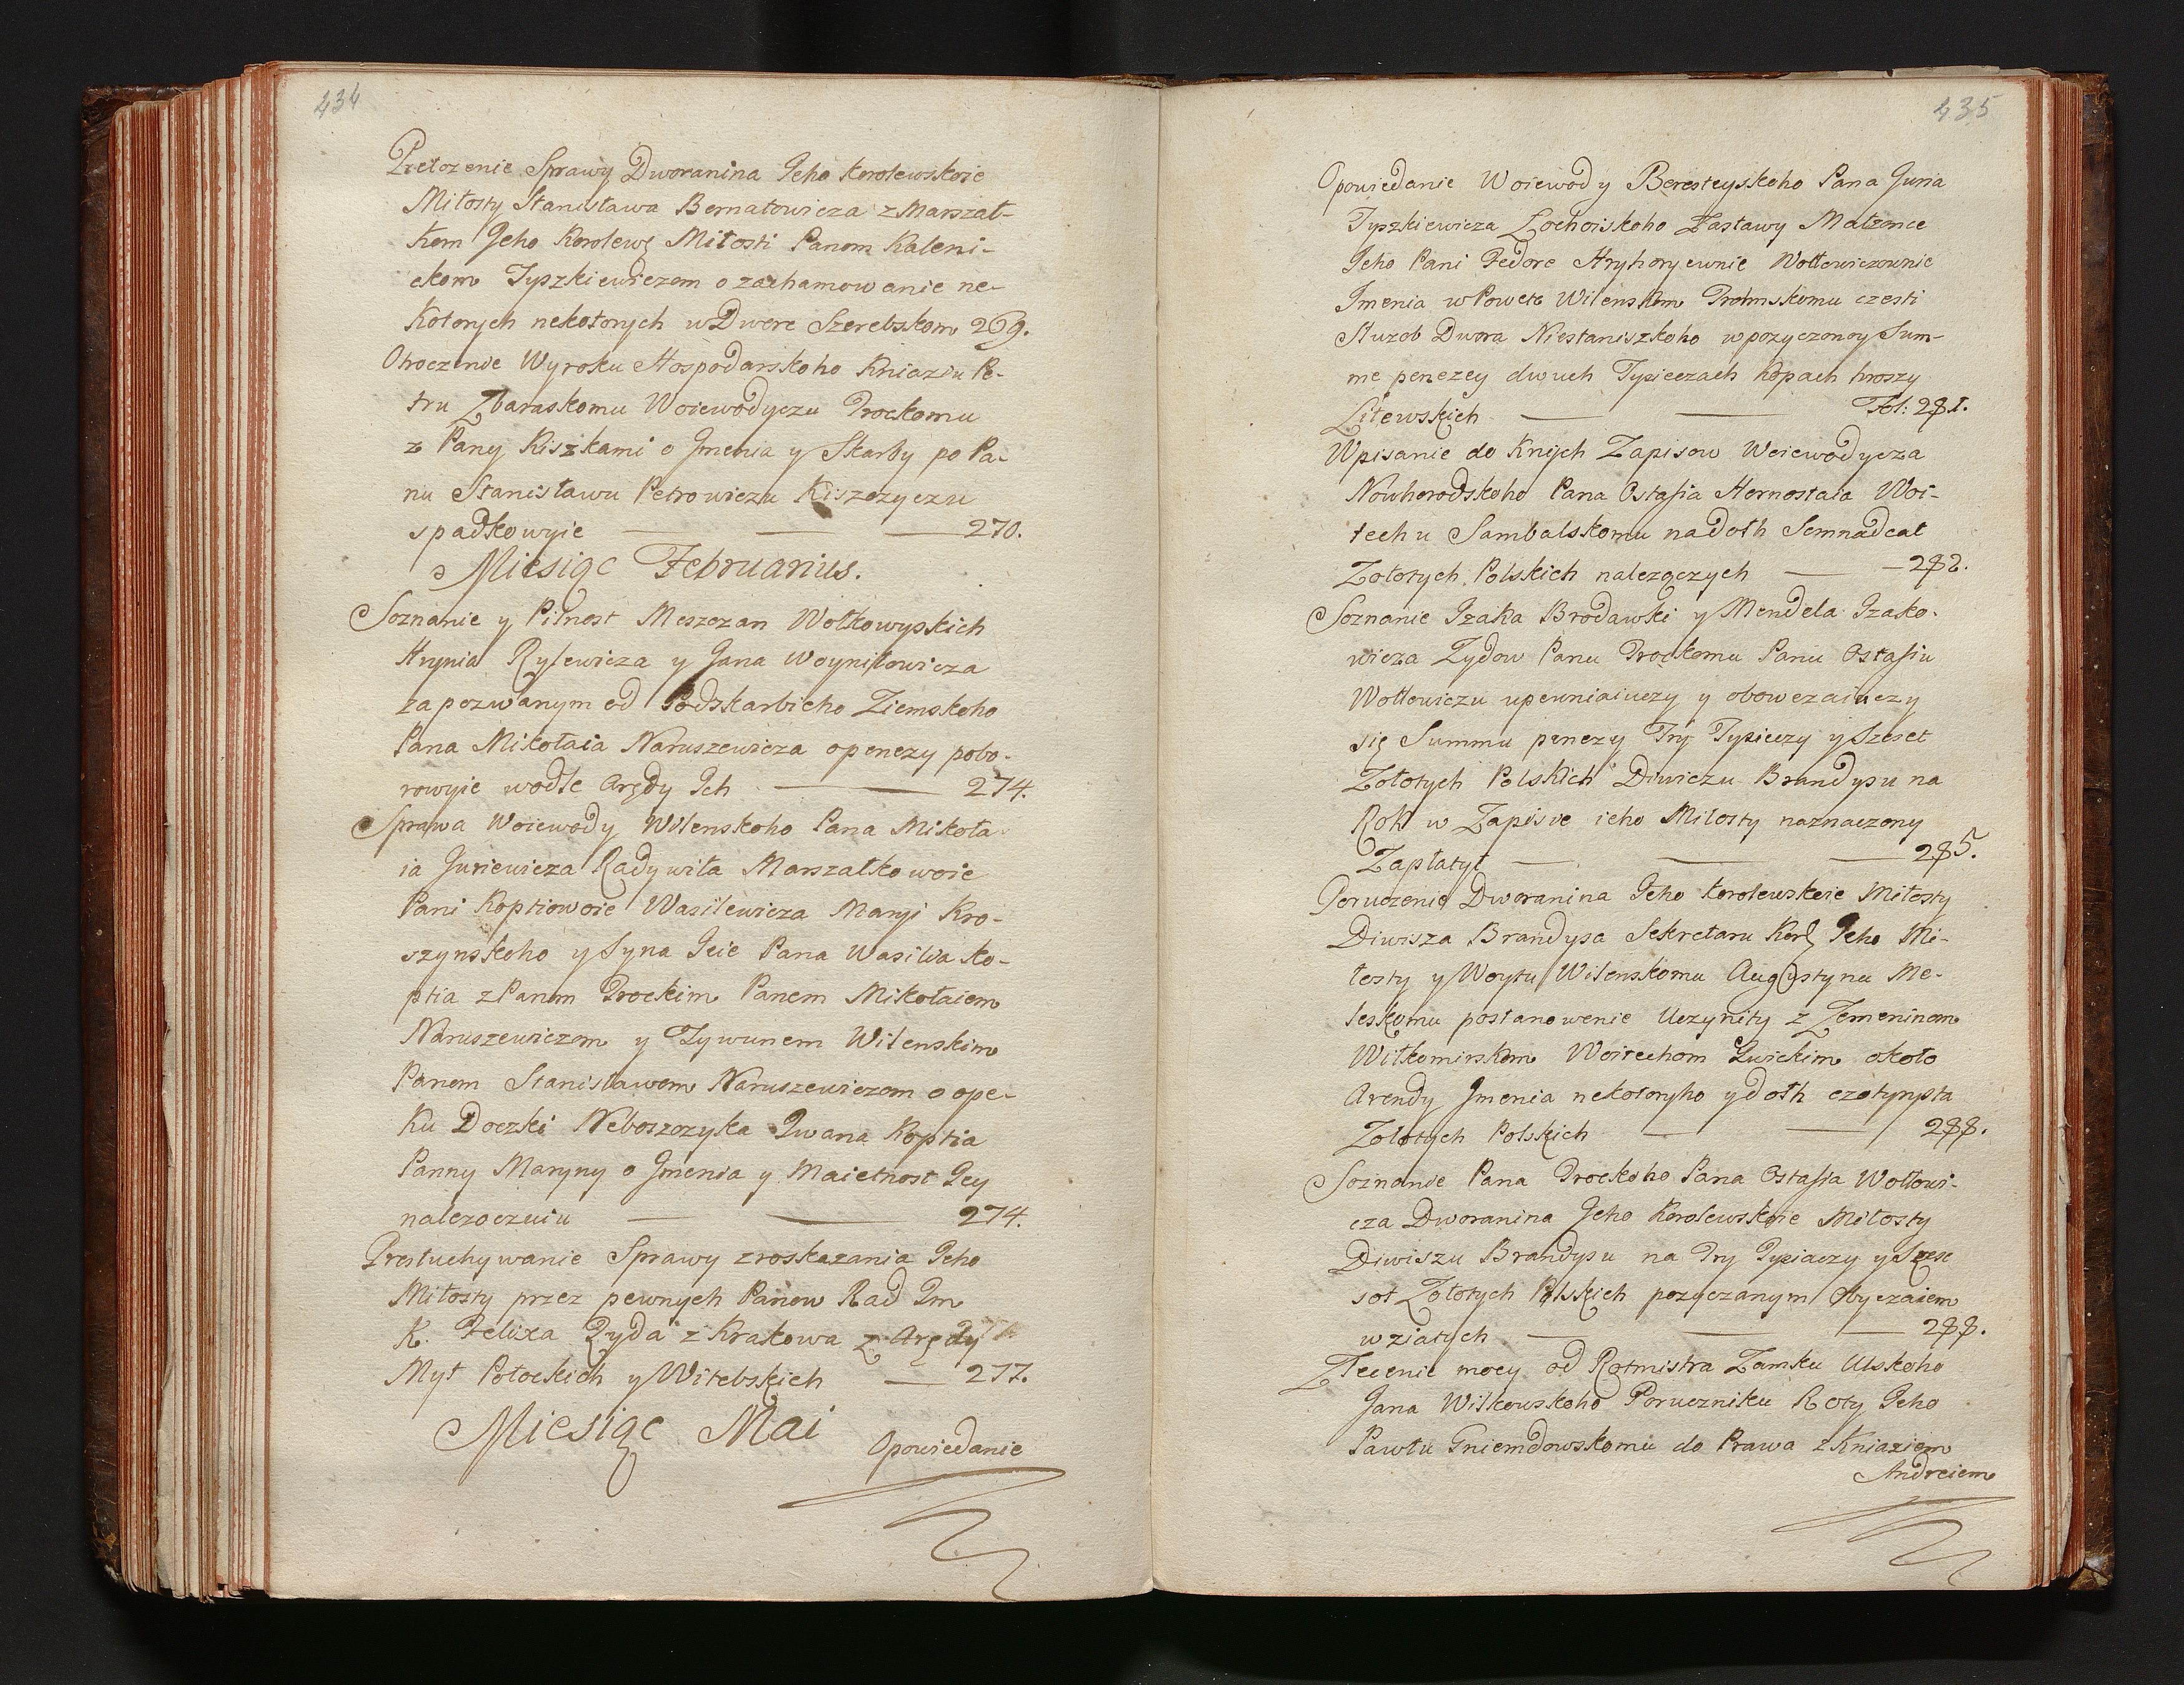 434
Prełozenie Sprawy Dworanina Jeho Korolewskoie
Miłosty Stanisława Bernatowicza z Marszał-
kom Jeho Korolews Miłosti Panom Kaleni-
ckom Tyszkiewiczom o zachamowanie ne-
kotorych nekotorych w Dwore Szerebskom 269.
Otroczenie Wyroku Hospodarskoho Kniaziu Pe-
tru Zbaraskomu Woiewodyczu Trockomu
z Pany Kiszkami o Jmenia y Skarby po Pa-
nu Stanisławu Petrowiczu Kiszczyczu
spadkowyie — — — 270.
Miesiąc Februarius.
Soznanie y Pilnost Meszczan Wołkowyskich
Hrynia Rylewicza y Jana Woyniłowicza
zapozwanym od Podskarbieho Ziemskoho
Pana Mikołaia Naruszewicza o penezy pobo-
rowyie wodle Arędy Ich — — 274.
Sprawa Woiewody Wilenskoho Pana Mikoła
ia Juriewicza Radywiła Marszałkowoie
Pani Koptiowoie Wasilewicza Maryi Kro-
szynskoho y Syna Jeie Pana Wasilia Ko-
ptia z Panom Trockim Panem Mikołaiem
Naruszewiczom y Tywunem Wilenskim
Panem Stanisławem Naruszewiczom o ope-
ku Doczki Neboszczyka Iwana Koptia
Panny Maryny o Jmenia y Maietnost Jey
nalezoczuiu — — 274.
Presłuchywanie Sprawy z roskazania Jeho
Miłosty przez pewnych Panow Rad Im
K. Felixa Żyda z Krakowa z Arędy
Myt Połockich y Witebskich — 277.
Miesiąc Mai
Opowiedanie
435
Opowiedanie Woiewody Beresteyskoho Pana Juria
Tyszkiewicza Łochoiskoho Zastawy Małzonce
Jeho Pani Fedore Hryhoryewnie Wołłowiczownie
Jmenia w Powete Wilenskom Prolmskomu czesti
Służob Dwora Niestaniszkoho w pozyczonoy Sum-
me penezey dwuch Tysieczach kopach hroszy
Litewskich — — Fol: 281.
Wpisanie do Knych Zapisow Woiewodycza
Nowhorodskoho Pana Ostafia Hornostaia Woi-
techu Sambalskomu na dołh Semnadcat
Zołotych Polskich nalezoczych — — 282.
Soznanie Izaka Brodawki y Mendela Izako-
wicza Żydow Panu Trockomu Panu Ostafiu
Wołłowiczu upewniaiuczy y obowezaiuczy
się Summu penezy Try Tysieczy y Szeset
Zołotych Polskich Diwiczu Brandysu na
Rok w Zapisie ieho Miłosty naznaczony
Zapłatyt — — — 285.
Poruczenie Dworanina Jeho Korolewskoie Miłosty
Diwisza Brandysa Sekretaru Korl Jeho Mi-
łosty y Woytu Wilenskomu Augustynu Me-
leskomu postanowenie Uczynity z Zemeninom
Wiłkomirskom Woitechom Zwickim około
Arendy Jmenia nekotoryho y dołh czotyrysta
Zolotych Polskich — — 288.
Soznanie Pana Trockoho Pana Ostafia Wołłowi-
cza Dworanina Jeho Korolewskoie Miłosty
Diwiszu Brandysu na Try Tysiaczy y Szesc
sot Zołotych Polskich pozyczanym Obyczaiem
wziatych — — — 288.
Zlecenie mocy od Rotmistra Zamku Ulskoho
Jana Wilkowskoho Poruczniku Roty Jeho
Pawłu Gniemdowskomu do Prawa z Kniaziem
Andreiem